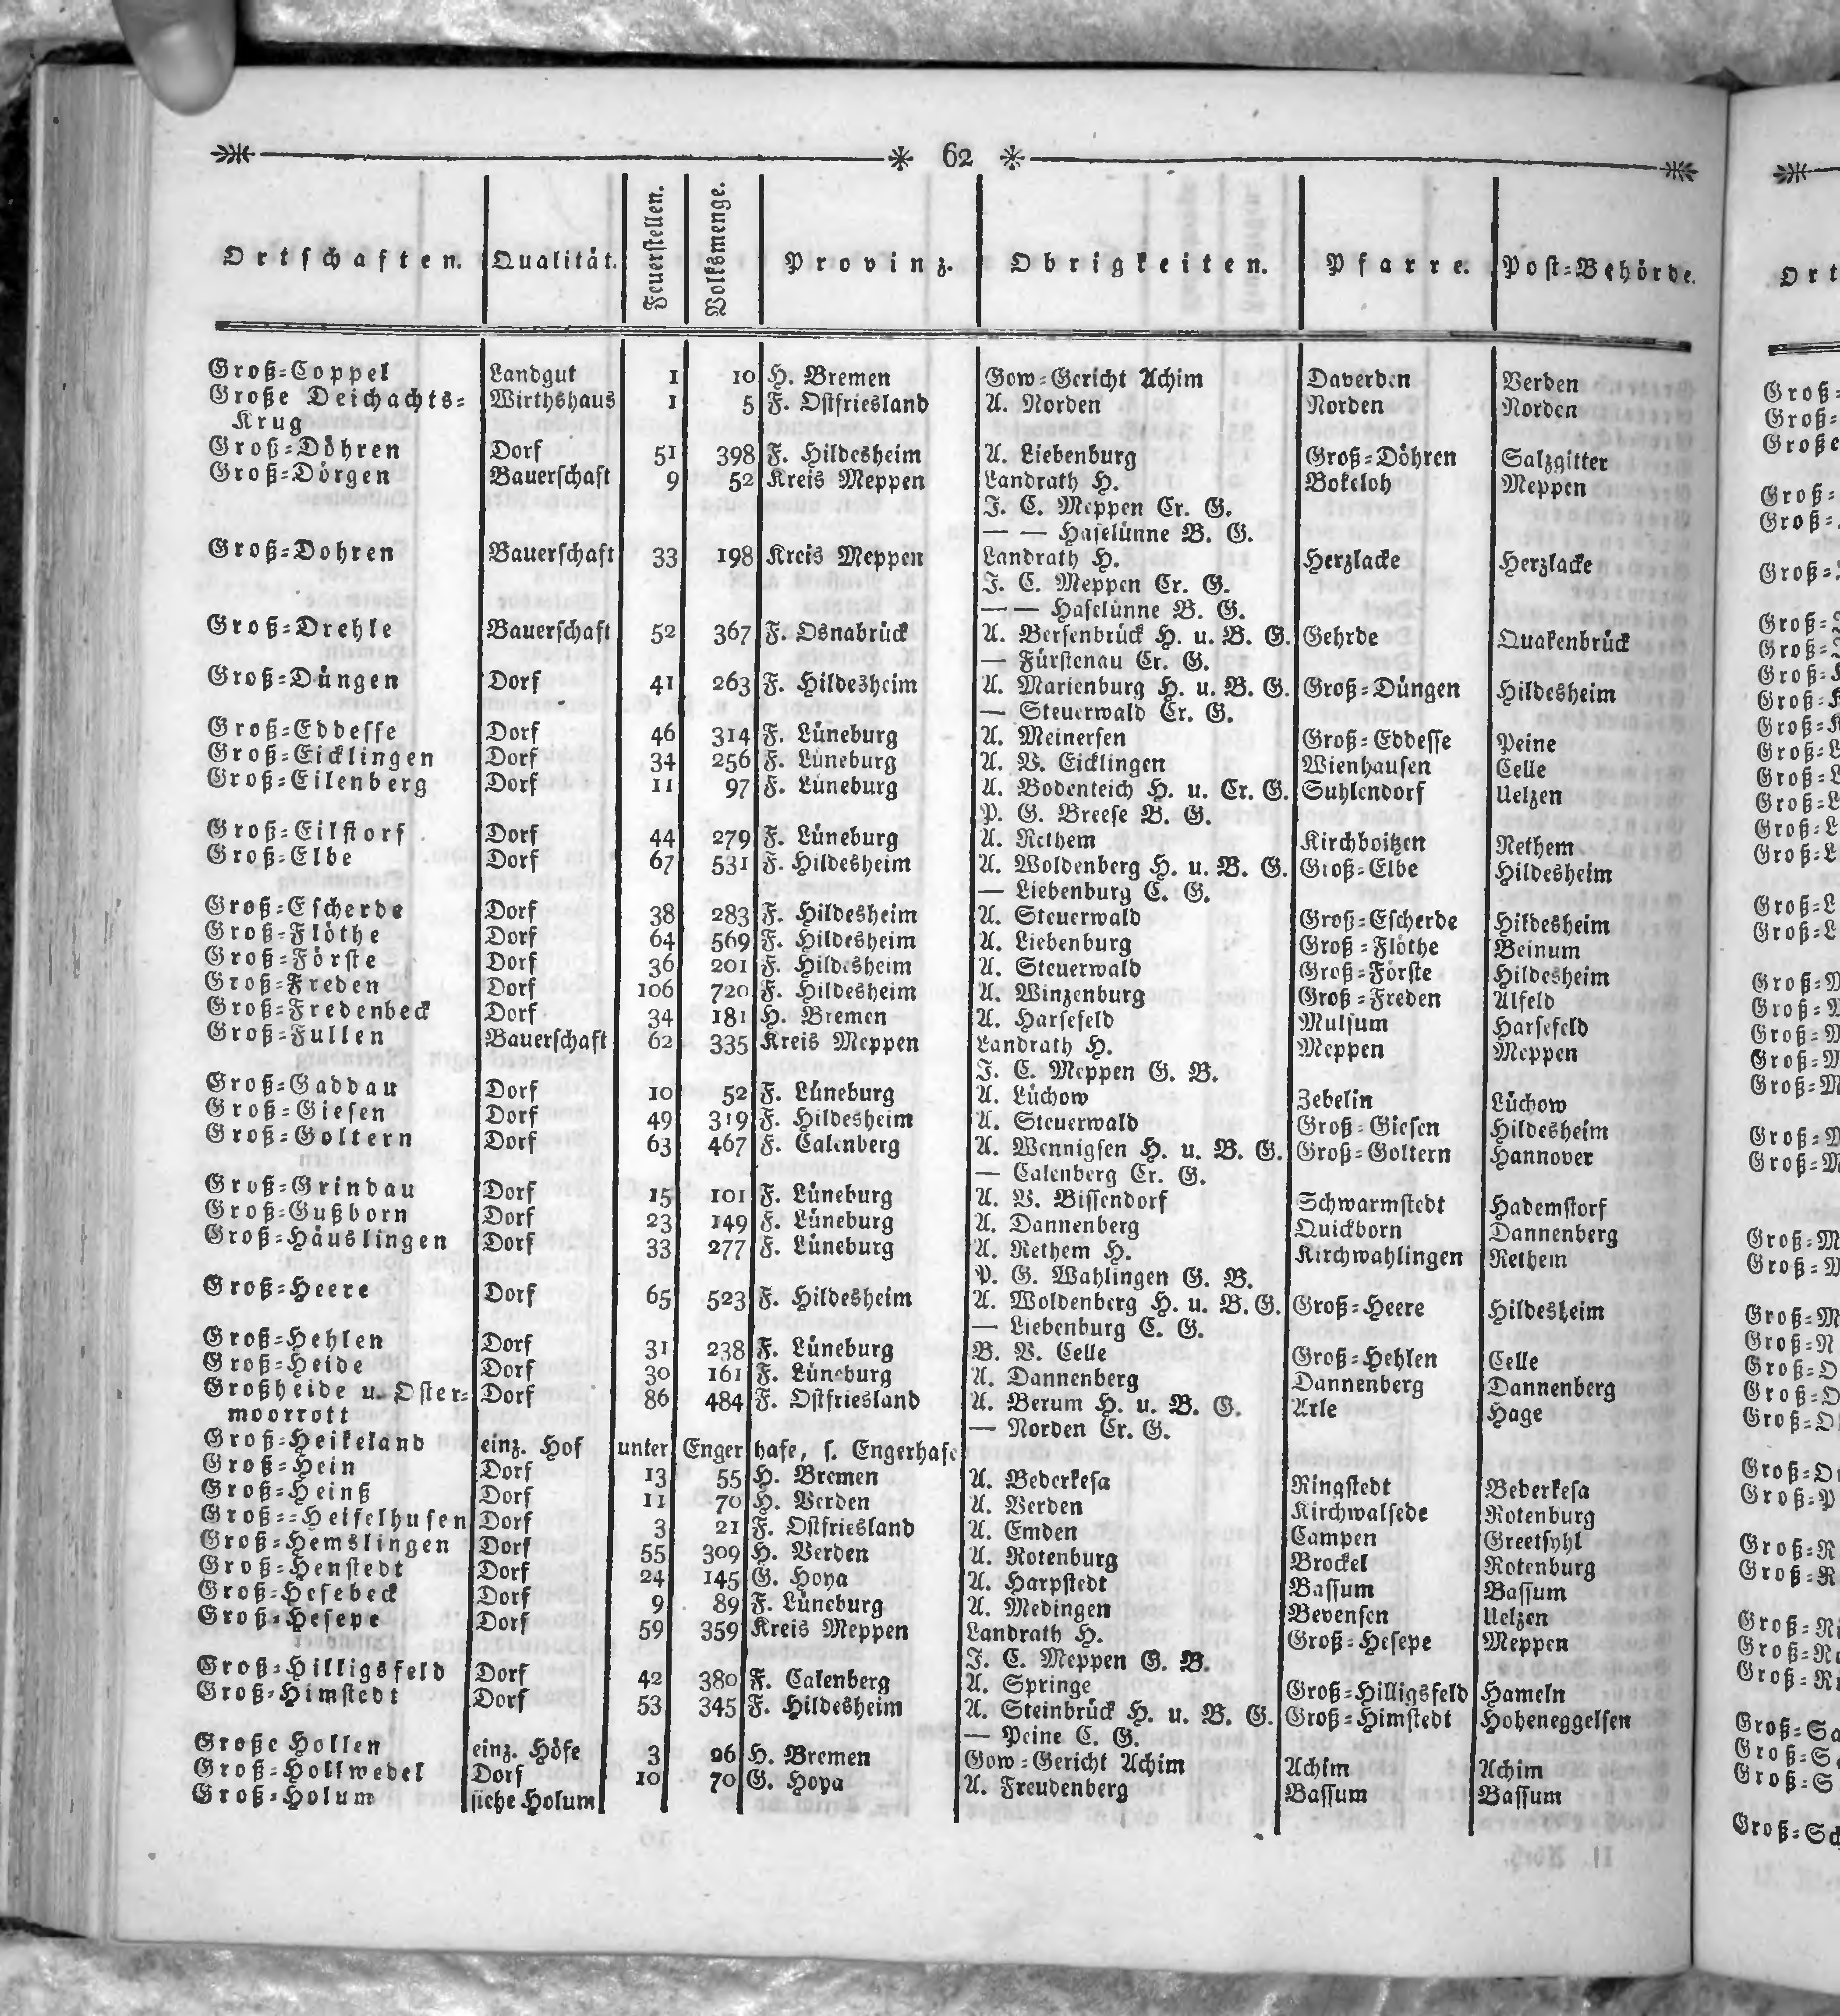 62
Ortschaften. Qualität. Feuerstellen. Volksmenge. Provinz. Obrigkeiten. Pfarre. Post-Behörde.
Groß-Coppel Landgut 1 10 H. Bremen Gow-Gericht Achim Daverden Verden
Große Deichachts- Wirthshaus 1 5 F. Ostfriesland A. Norden Norden Norden
Krug
Groß-Döhren Dorf 51 398 F. Hildesheim A. Liebenburg Groß-Döhren Salzgitter
Groß-Dörgen Bauerschaft 9 52 Kreis Meppen Landrath H. Bokeloh Meppen
J. C. Meppen Cr. G.
— — Haselünne B. G.
Groß-Dohren Bauerschaft 33 198 Kreis Meppen Landrath H. Herzlacke Herzlacke
J. C. Meppen Cr. G.
— — Haselünne B. G.
Groß-Drehle Bauerschaft 52 367 F. Osnabrück A. Bersenbrück H. u. B. G. Gehrde Quakenbrück
— Fürstenau Cr. G.
Groß-Düngen Dorf 41 263 F. Hildesheim A. Marienburg H. u. B. G. Groß-Düngen Hildesheim
— Steuerwald Cr. G.
Groß-Eddesse Dorf 46 314 F. Lüneburg A. Meinersen Groß-Eddesse Peine
Groß-Eicklingen Dorf 34 256 F. Lüneburg A. V. Eicklingen Wienhausen Celle
Groß-Eilenberg Dorf 11 97 F. Lüneburg A. Bodenteich H. u. Cr. G. Suhlendorf Uelzen
P. G. Breese B. G.
Groß-Eilstorf Dorf 44 279 F. Lüneburg A. Rethem Kirchboitzen Rethem
Groß-Elbe Dorf 67 531 F. Hildesheim A. Woldenberg H. u. B. G. Groß-Elbe Hildesheim
— Liebenburg C. G.
Groß-Escherde Dorf 38 283 F. Hildesheim A. Steuerwald Groß-Escherde Hildesheim
Groß-Flöthe Dorf 64 569 F. Hildesheim A. Liebenburg Groß-Flöthe Beinum
Groß-Förste Dorf 36 201 F. Hildesheim A. Steuerwald Groß-Förste Hildesheim
Groß-Freden Dorf 106 720 F. Hildesheim A. Winzenburg Groß-Freden Alfeld
Groß-Fredenbeck Dorf 34 181 H. Bremen A. Harsefeld Mulsum Harsefeld
Groß-Fullen Bauerschaft 62 335 Kreis Meppen Landrath H. Meppen Meppen
J. C. Meppen G. B.
Groß-Gaddau Dorf 10 52 F. Lüneburg A. Lüchow Zebelin Lüchow
Groß-Giesen Dorf 49 319 F. Hildesheim A. Steuerwald Groß-Giesen Hildesheim
Groß-Goltern Dorf 63 467 F. Calenberg A. Wennigsen H. u. B. G. Groß-Goltern Hannover
— Calenberg Cr. G.
Groß-Grindau Dorf 15 101 F. Lüneburg A. V. Bissendorf Schwarmstedt Hademstorf
Groß-Gußborn Dorf 23 149 F. Lüneburg A. Dannenberg Quickborn Dannenberg
Groß-Häuslingen Dorf 33 277 F. Lüneburg A. Rethem H. Kirchwahlingen Rethem
P. G. Wahlingen G. B.
Groß-Heere Dorf 65 523 F. Hildesheim A. Woldenberg H. u. B. G. Groß-Heere Hildesheim
— Liebenburg C. G.
Groß-Hehlen Dorf 31 238 F. Lüneburg B. V. Celle Groß-Hehlen Celle
Groß-Heide Dorf 30 161 F. Lüneburg A. Dannenberg Dannenberg Dannenberg
Großheide u. Oster- Dorf 86 484 F. Ostfriesland A. Berum H. u. B. G. Arle Hage
moorrott — Norden Cr. G.
Groß-Heikeland einz. Hof unter Enger hafe, s. Engerhafe
Groß-Hein Dorf 13 55 H. Bremen A. Bederkesa Ringstedt Bederkesa
Groß-Heinß Dorf 11 70 H. Verden A. Verden Kirchwalsede Rotenburg
Groß--Heiselhusen Dorf 3 21 F. Ostfriesland A. Emden Campen Greetsyhl
Groß-Hemslingen Dorf 55 309 H. Verden A. Rotenburg Brockel Rotenburg
Groß-Henstedt Dorf 24 145 G. Hoya A. Harpstedt Bassum Bassum
Groß-Hesebeck Dorf 9 89 F. Lüneburg A. Medingen Bevensen Uelzen
Groß-Hesepe Dorf 59 359 Kreis Meppen Landrath H. Groß-Hesepe Meppen
J. C. Meppen G. B.
Groß-Hilligsfeld Dorf 42 380 F. Calenberg A. Springe Groß-Hilligsfeld Hameln
Groß-Himstedt Dorf 53 345 F. Hildesheim A. Steinbrück H. u. B. G. Groß-Himstedt Hoheneggelsen
— Peine C. G.
Große Hollen einz. Höfe 3 26 H. Bremen Gow-Gericht Achim Achim Achim
Groß-Hollwedel Dorf 10 70 G. Hoya A. Freudenberg Bassum Bassum
Groß-Holum siehe Holum